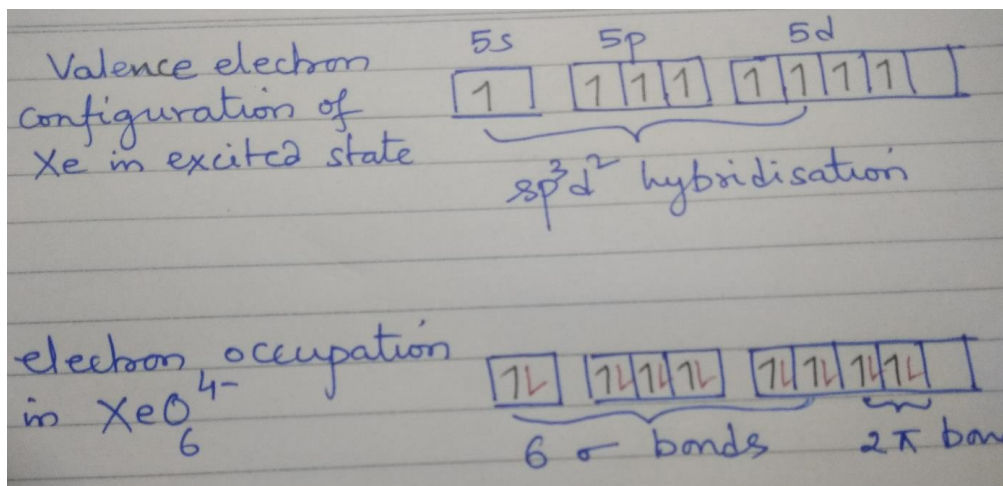 5s 5p 5d
Valence electron
configuration of
Xe in excited state
1 1 1 1 1 1 1 1
sp³d² hybridisation
electron occupation
in XeO₆⁴⁻
1L 1L 1L 1L 1L 1L 1L 1L
6 σ bonds 2π bon